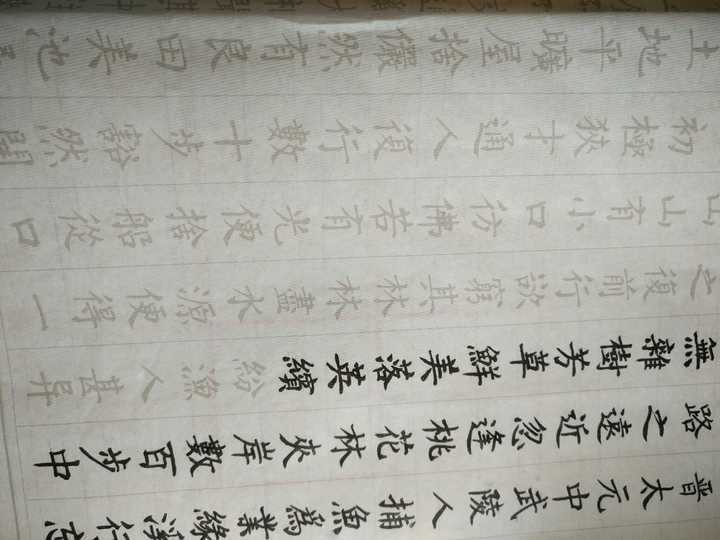 晉太元中武陵人捕魚為業緣溪行忘
路之遠近忽逢桃花林夾岸數百步中
無雜樹芳草鮮美落英繽紛漁人甚異
之復前行欲窮其林林盡水源便得一
山有小口仿佛若有光便捨船從口
初極狹才通人復行數十步豁然開
土地平曠屋捨儼然有良田美池